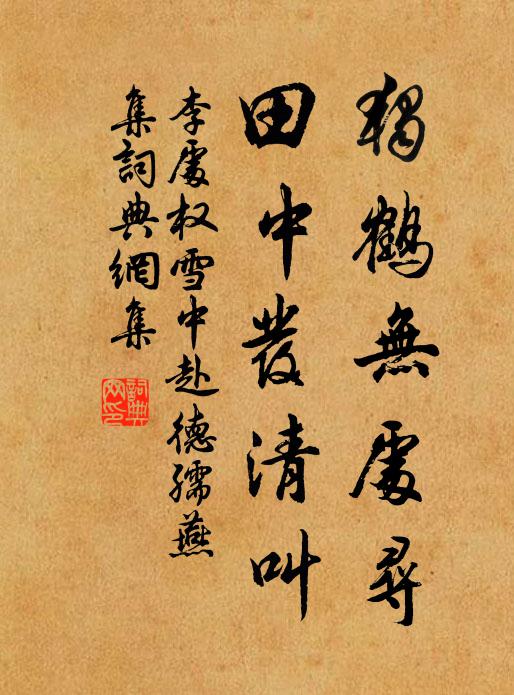 獨鶴無處尋
田中發清叫
李處权雪中赴德孺燕
集詞典網集
詞典網印